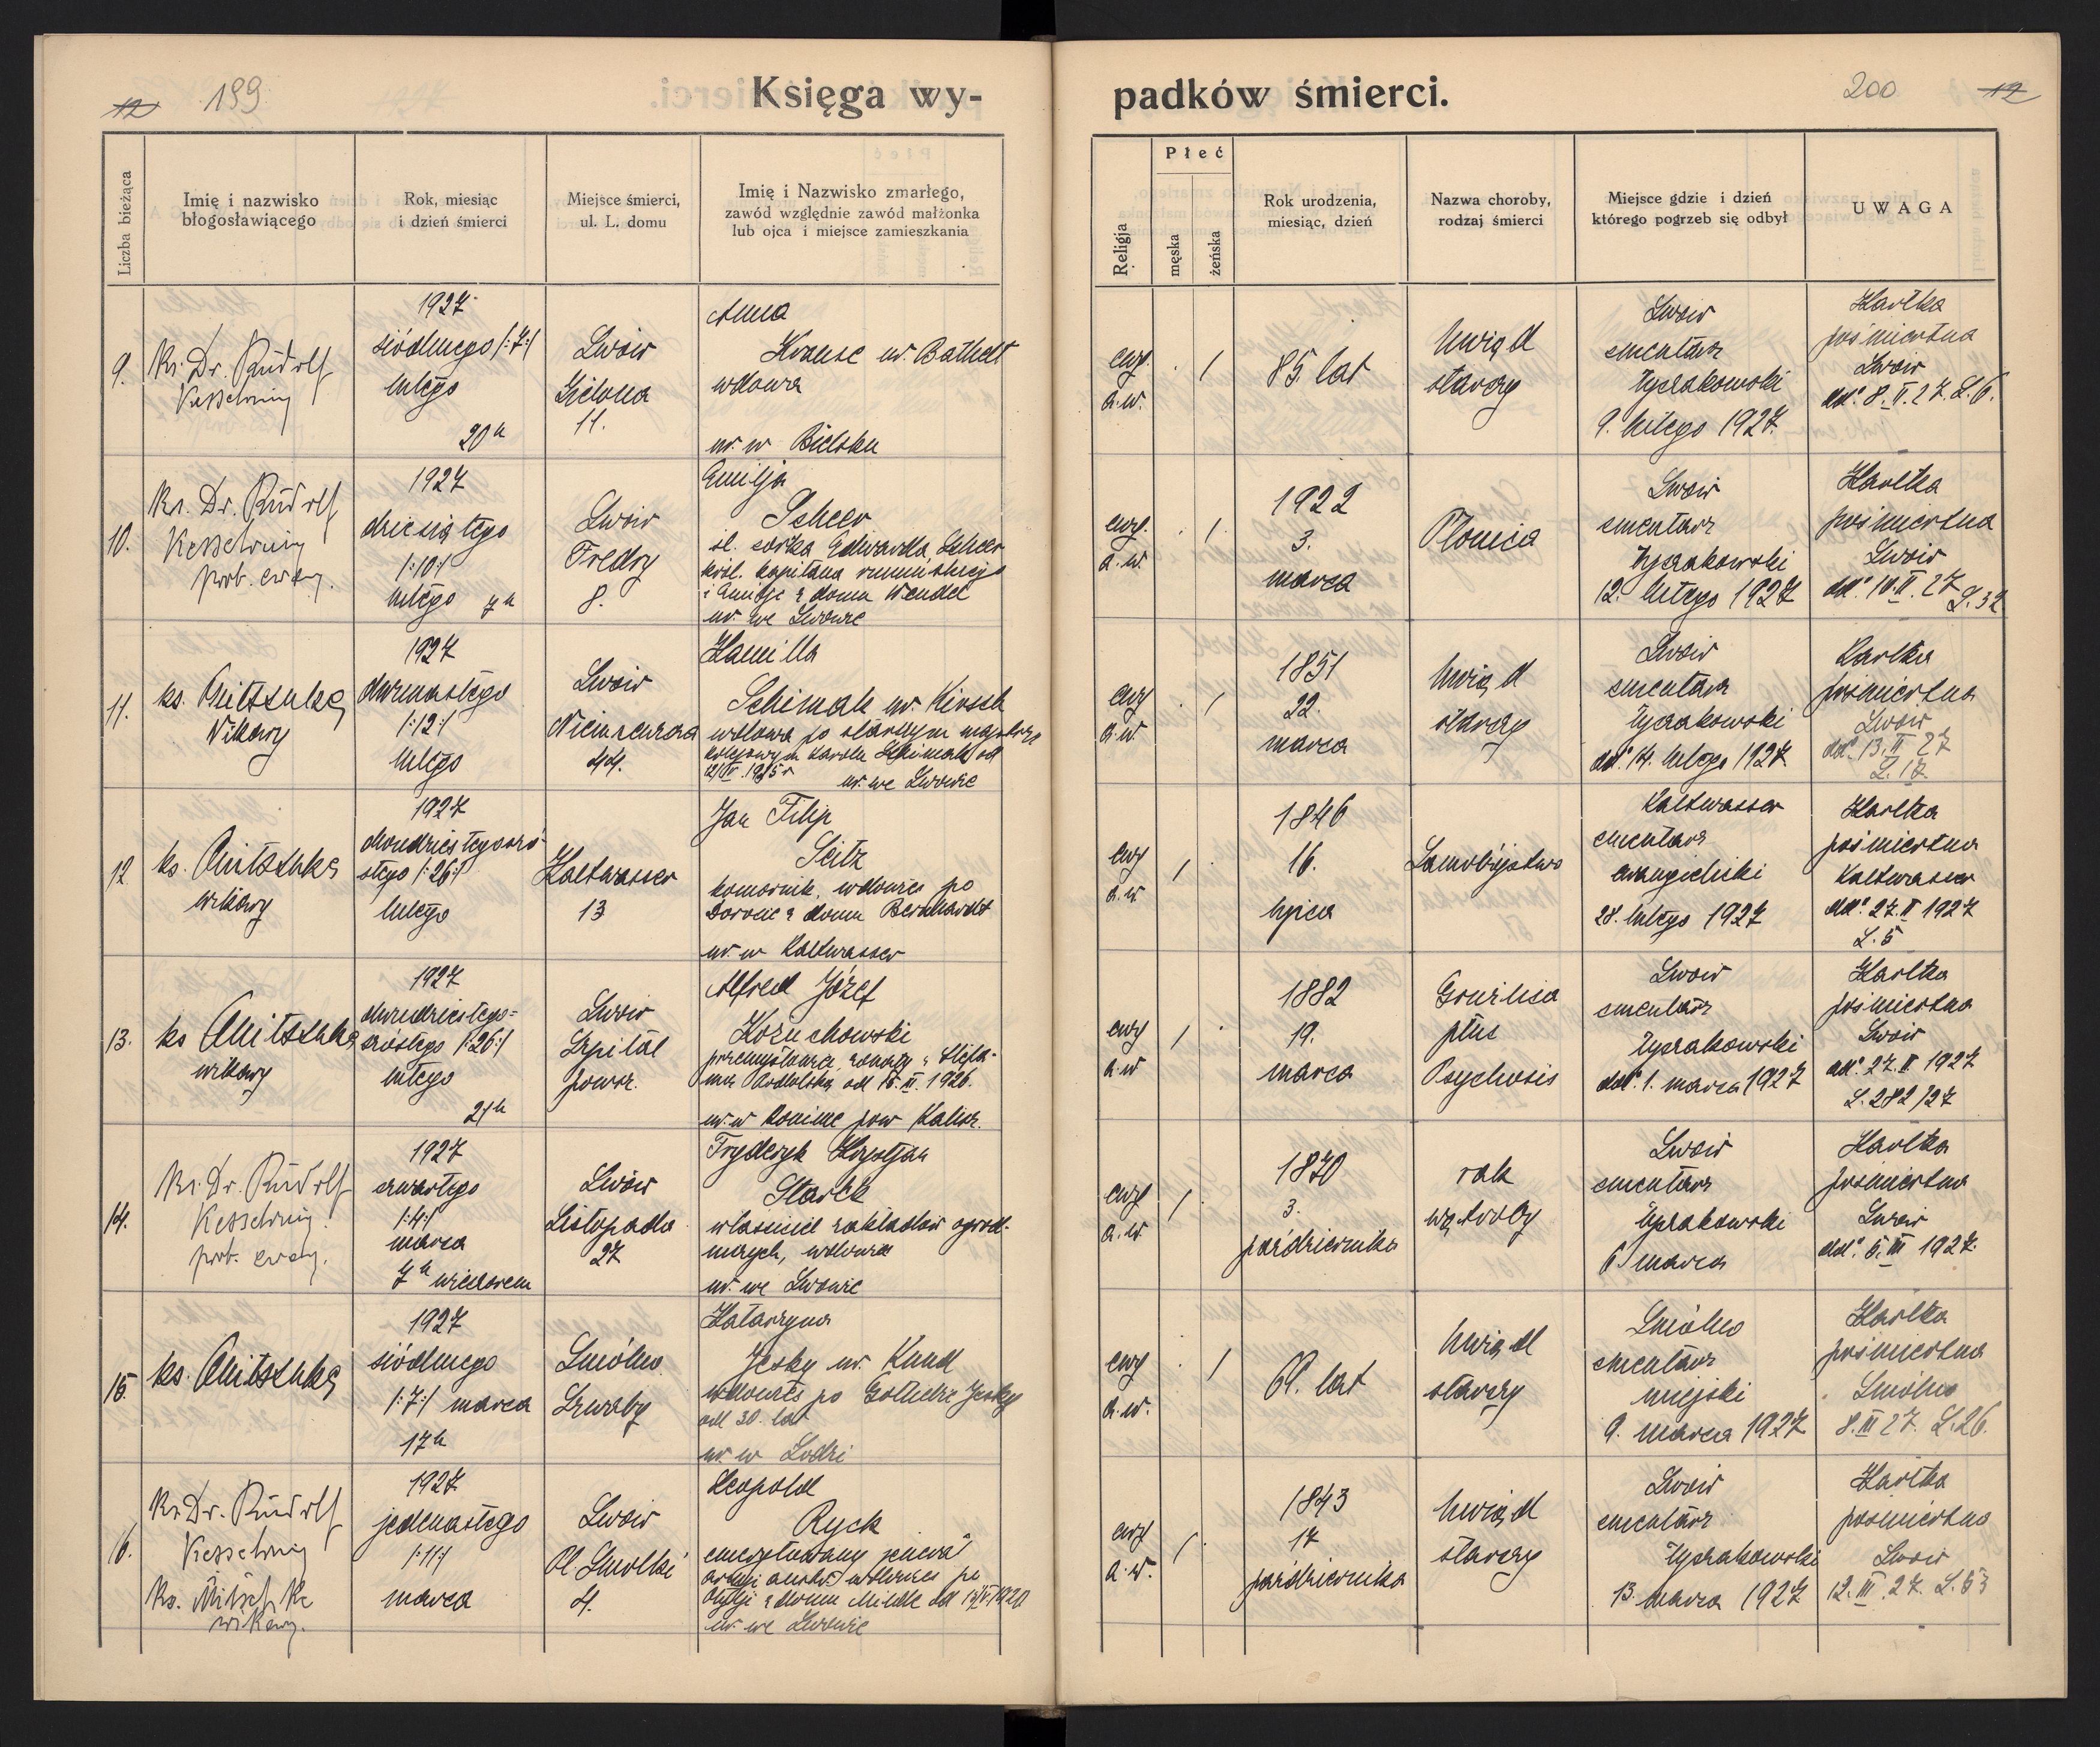 12 199
Księga wy-
padków śmierci.
200 12
Liczba bieżąca
Imię i nazwisko
błogosławiącego
Rok, miesiąc
i dzień śmierci
Miejsce śmierci,
ul. L. domu
Imię i Nazwisko zmarłego,
zawód względnie zawód małżonka
lub ojca i miejsce zamieszkania
Religja
Płeć
męska
żeńska
Rok urodzenia,
miesiąc, dzień
Nazwa choroby,
rodzaj śmierci
Miejsce gdzie i dzień
którego pogrzeb się odbył
UWAGA
9.
Ks. Dr. Rudolf
Kesselring
1927
siódmego /:7:/
lutego
20h
Lwów
Zielona
11.
Anna
Krause ur. Bathelt
wdowa
ur. w Bielsku
ewg.
a. w.
/
85 lat
Uwiąd
starczy
Lwów
cmentarz
Łyczakowski
9. lutego 1927.
Kartka
pośmiertna
Lwów
dd. 8. II. 27. L. 6.
10.
Ks. Dr. Rudolf
Kesselring
prob. ewang.
1927
dziesiątego
/:10:/
lutego 7h
Lwów
Fredry
8.
Emilja
Scheer
śl. córka Edwarda Scheer
król. kapitana rumuńskiego
i Emilje z domu Wendel
ur. we Lwowie
ewg.
a. w.
/
1922
3.
marca
Płonica
Lwów
cmentarz
Łyczakowski
12. lutego 1927
Kartka
pośmiertna
Lwów
dd. 10. II. 27
L. 32
11.
ks. Mitschke
Wikary
1927
dwunastego
/:12:/
lutego
Lwów
44.
Kamilla
Schimak ur. Kirsch
wdowa po starszym majstrze
kolejowym Karolu Schimak od
ur. we Lwowie
ewg
a. w
/
1851
22.
marca
Uwiąd
starczy
Lwów
cmentarz
Łyczakowski
dd. 14. lutego 1927.
Kartka
pośmiertna
Lwów
dd. 13. II 27
L. 17.
12.
ks. Mitschke
wikary
1927
dwudziestegoszó
stego /:26:/
lutego
Kaltwasser
13
Jan Filip
Seitz
komornik, wdowiec po
Dorocie z domu Bernhardt
ur. w Kaltwasser
ewg
a. w
/
1846
16.
lipca
Samobójstwo
Kaltwasser
cmentarz
ewangielicki
28. lutego 1927
Kartka
pośmiertna
Kaltwasser
dd. 27. II 1927
L. 5
13.
ks Mitschke
wikary
1927
dwudziestego=
szóstego /:26:/
lutego
21h
Lwów
Szpital
powsz.
Alfred Józef
Kożuchowski
przemysłowiec, żonaty z Stefa-
nią Podolską od 15. III. 1926.
ur. w Koninie pow Kalisz.
ewg
a. w
/
1882
19.
marca
Gruźlica
płuc
Psychosis
Lwów
cmentarz
Łyczakowski
dd. 1. marca 1927
Kartka
pośmiertna
Lwów
dd. 27. II 1927
L. 282/27
14.
Ks. Dr. Rudolf
Kesselring.
prob. ewang.
1927
czwartego
/:4:/
marca
7h wieczorem
Lwów
Listopada
27
Fryderyk Krystjan
Starck
właściciel zakładów ogrod-
niczych, wdowiec
ur. we Lwowie
ewg
a. w.
/
1870
3.
października
rak
wątroby
Lwów
cmentarz
Łyczakowski
6. marca
Kartka
pośmiertna
Lwów
dd. 5. III 1927.
15.
ks. Mitschke
1927
siódmego
/:7:/ marca
17h
Katarzyna
Jesky ur. Kund
od 30. lat
ur. w Łodzi
ewg
a. w.
/
69. lat
Uwiąd
starczy
cmentarz
miejski
9. marca 1927
Kartka
pośmiertna
8. III 27. L. 26.
16.
Ks Dr. Rudolf
Kesselring
Ks. Mitschke
wikary.
1927
jedenastego
/:11:/
marca
Lwów
Pl Smolki
4.
Leopold
Ryck
emerytowany generał
armji austr. wdowiec po
ur. we Lwowie
ewg
a. w.
/
1843
17
października
Uwiąd
starczy
Lwów
cmentarz
Łyczakowski
13. marca 1927
Kartka
pośmiertna
Lwów
12. III. 27. L. 53